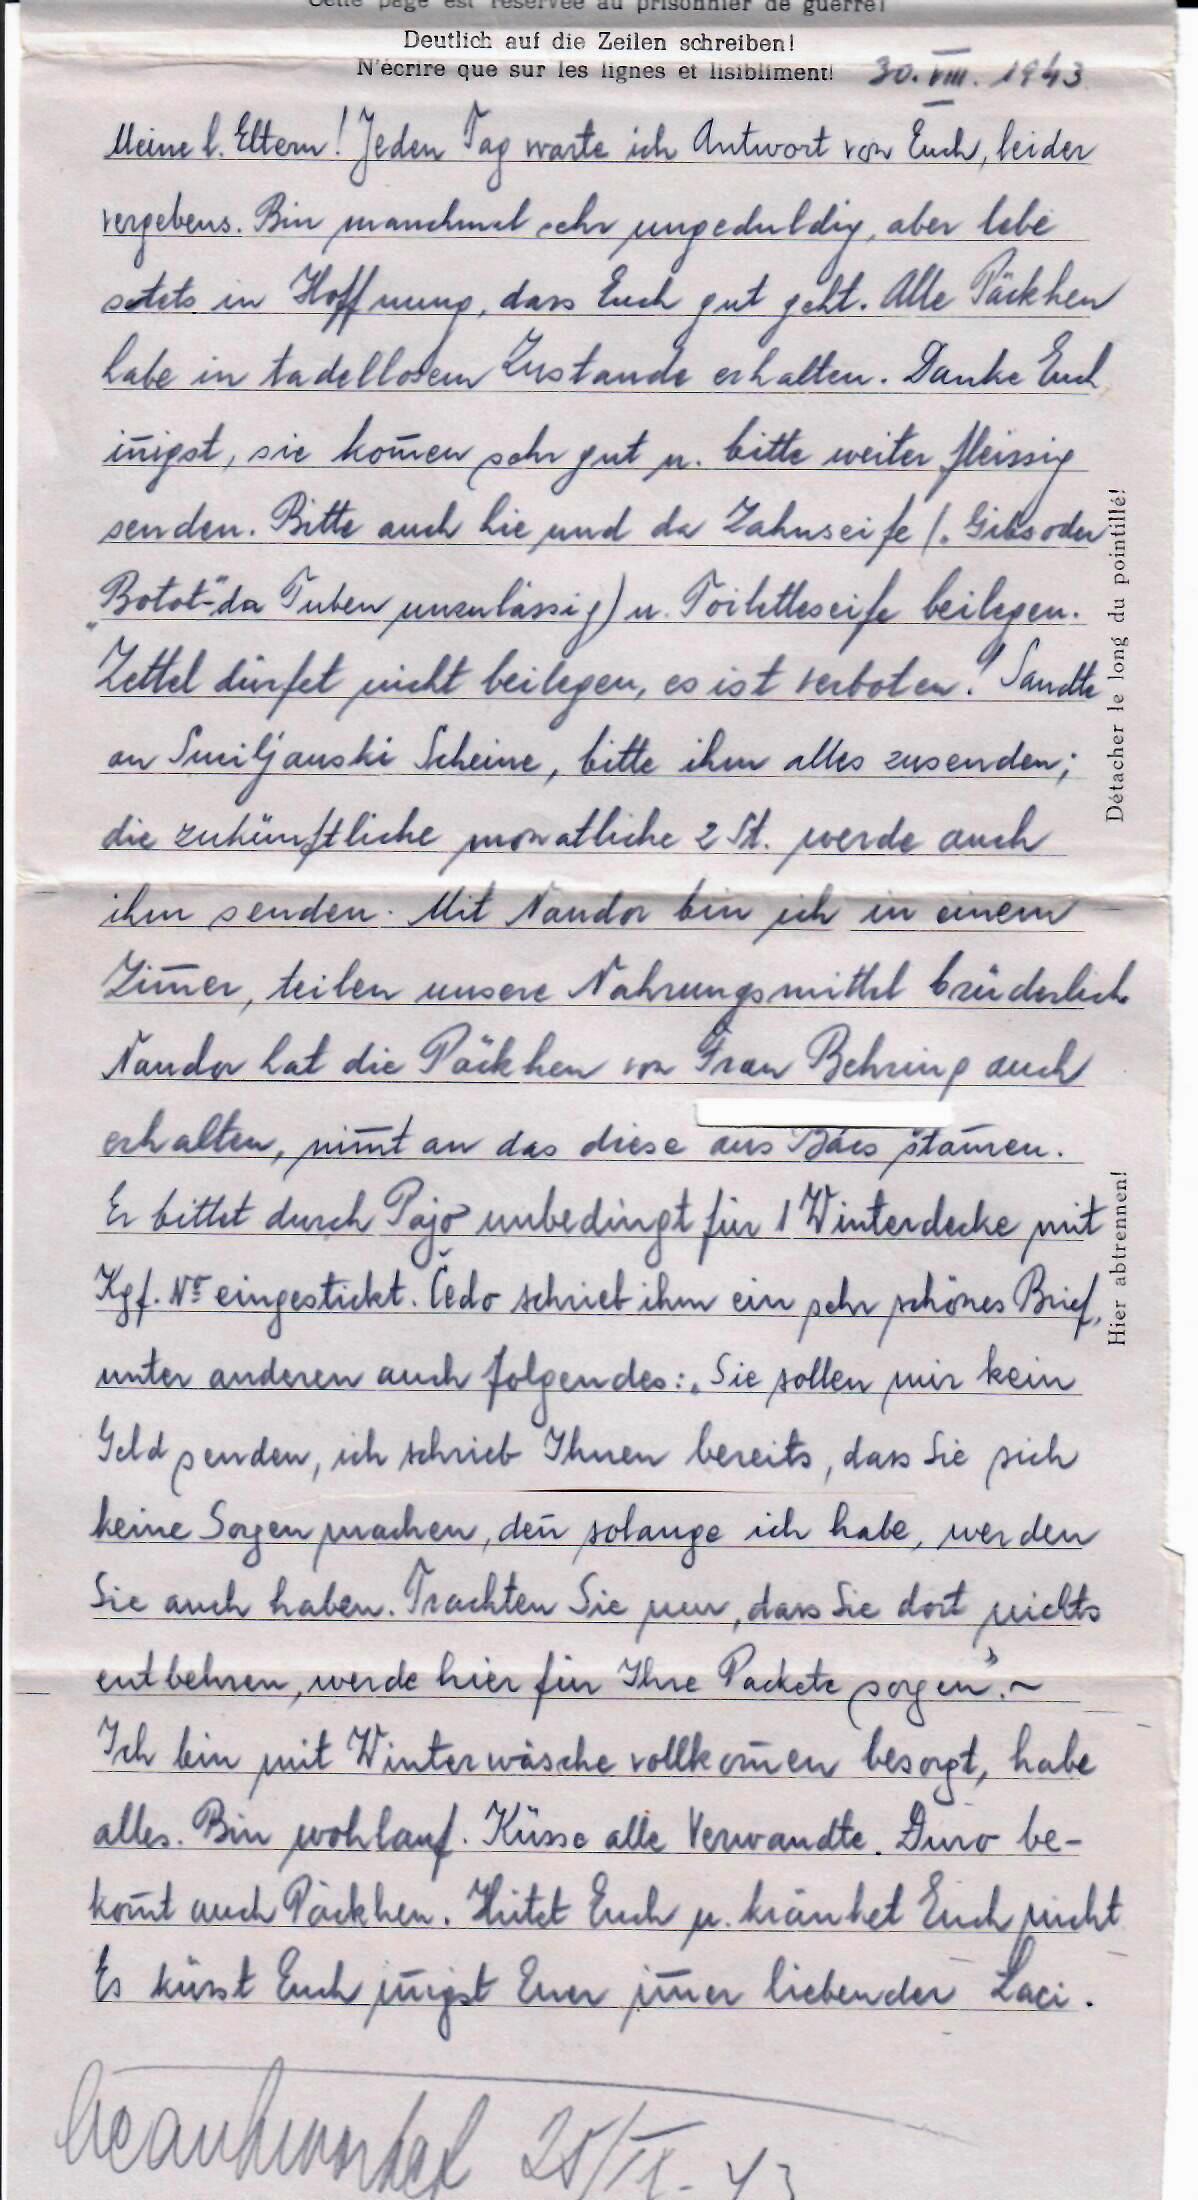 Cette page est réservée au prisonnier de guerre!
Deutlich auf die Zeilen schreiben!
N'écrire que sur les lignes et lisibliment!
30. VIII. 1943
Meine l. Eltern! Jeden Tag warte ich Antwort von Euch, leider
vergebens. Bin manchmal sehr ungeduldig, aber lebe
stets in Hoffnung, dass Euch gut geht. Alle Päckhen
habe in tadellosem Zustande erhalten. Danke Euch
in̅igst, sie kom̅en sehr gut u. bitte weiter fleissig
senden. Bitte auch hie und da Zahnseife (. Gibs oder
„Botot"-da Tuben unzulässig) u. Toiletteseife beilegen.
Zettel dürfet nicht beilegen, es ist verboten! Sandte
an Smiljanski Scheine, bitte ihm alles zusenden;
die zukünftliche monatliche 2 St. werde auch
ihm senden. Mit Nandor bin ich in einem
Zim̅er, teilen unsere Nahrungsmittel brüderlich
Nandor hat die Päckhen von Frau Behring auch
erhalten, nim̅t an das diese aus Bács stam̅en.
Er bittet durch Pajo unbedingt für 1 Winterdecke mit
Kgf. No eingestickt. Čedo schrieb ihm ein sehr schönes Brief,
unter anderen auch folgendes: „Sie sollen mir kein
Geld senden, ich schrieb Ihnen bereits, dass Sie sich
keine Sorgen machen, den̅ solange ich habe, werden
Sie auch haben. Trachten Sie nur, dass Sie dort nichts
entbehren, werde hier für Ihre Packete sorgen".~
Ich bin mit Winterwäsche vollkom̅en besorgt, habe
alles. Bin wohlauf. Küsse alle Verwandte. Đuro be-
kom̅t auch Päckhen. Hütet Euch u. kränket Euch nicht
Es küsst Euch in̅igst Euer im̅er liebender Laci.
beantwortet 25/IX. 43
Détacher le long du pointillé!
Hier abtrennen!